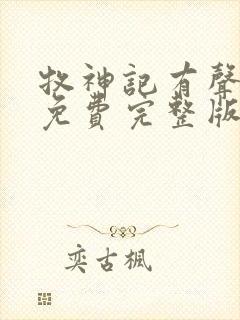 牧神記有聲
免費完整版
奕古楓